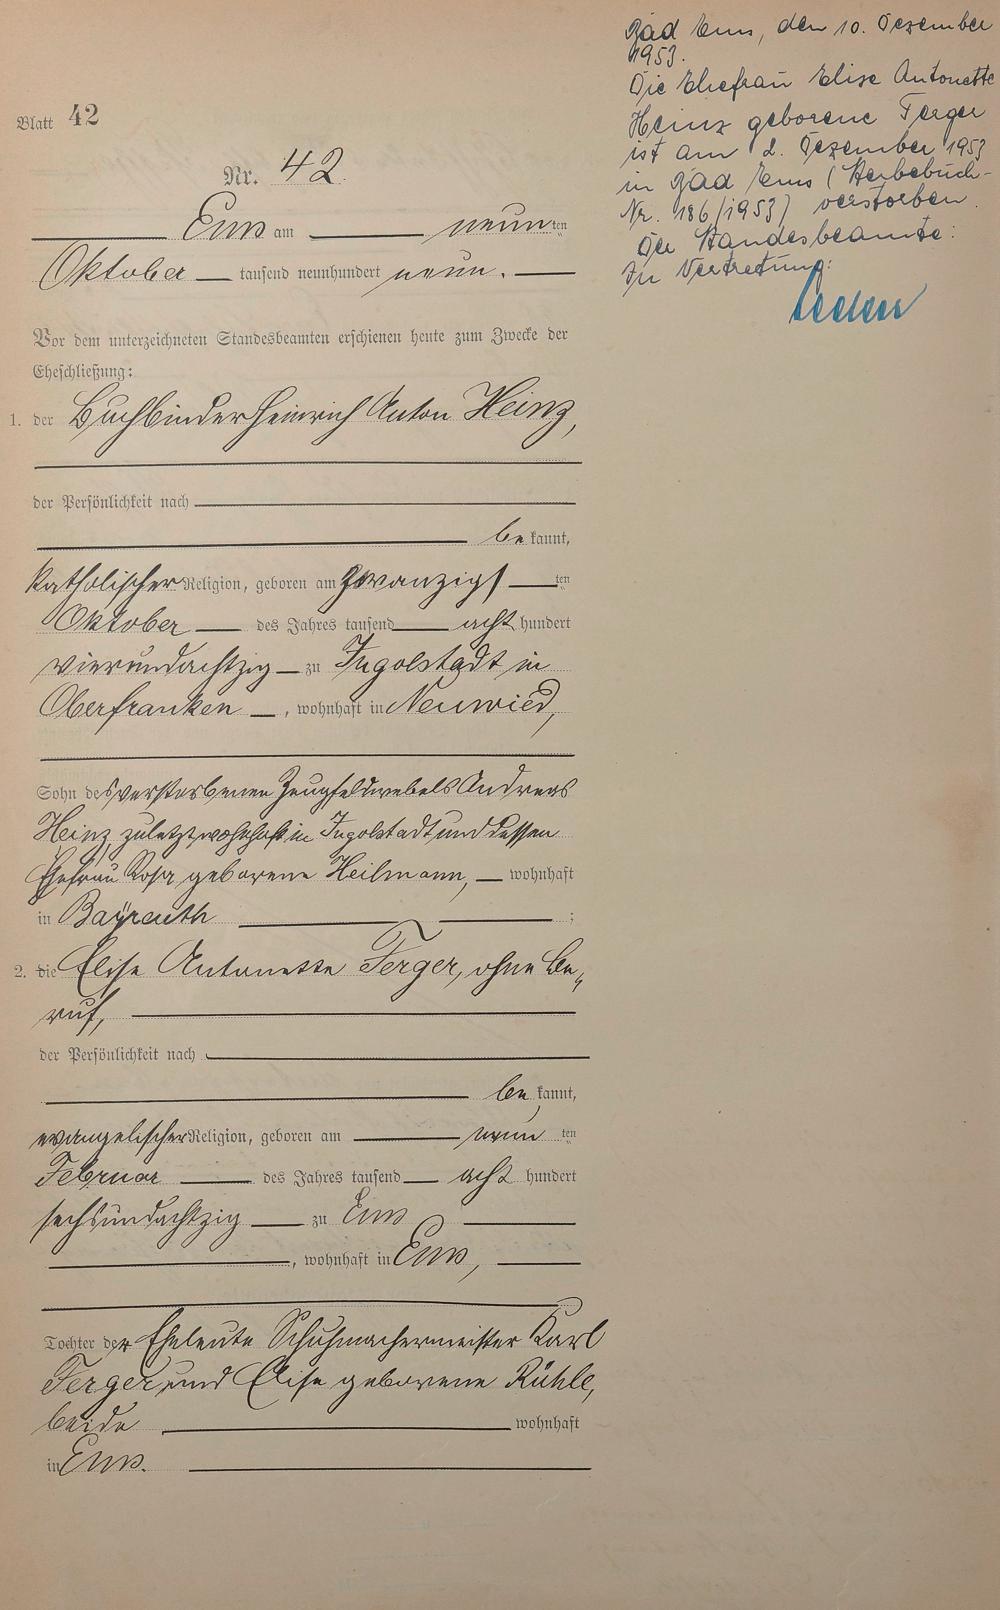 Blatt 42
Nr. 42.
Ems am neunten
Oktober tausend neunhundert neun.
Vor dem unterzeichneten Standesbeamten erschienen heute zum Zwecke der
Eheschließung:
1. der Buchbinder Heinrich Anton Heinz,
der Persönlichkeit nach
bekannt,
katholischer Religion, geboren am zwanzigsten
Oktober des Jahres tausend acht hundert
vierundachtzig zu Ingolstadt in
Oberfranken, wohnhaft in Neuwied,
Sohn des verstorbenen Zeugfeldwebels Andreas
Heinz zuletzt wohnhaft in Ingolstadt und dessen
Ehefrau Rosa geborene Heilmann, wohnhaft
in Bayreuth ;
2. die Elise Antonette Ferger, ohne Be„
ruf,
der Persönlichkeit nach
bekannt,
evangelischer Religion, geboren am neunten
Februar des Jahres tausend acht hundert
sechsundachtzig zu Ems
, wohnhaft in Ems,
Tochter der Eheleute Schuhmachermeister Karl
Ferger und Elise geborene Rühle,
beide wohnhaft
in Ems.
Bad Ems, den 10. Dezember
1953.
Die Ehefrau Elise Antonette
Heinz geborene Ferger
ist am 2. Dezember 1953
in Bad Ems (Sterbebuch-
Nr. 186/1953) verstorben.
Der Standesbeamte:
In Vertretung: